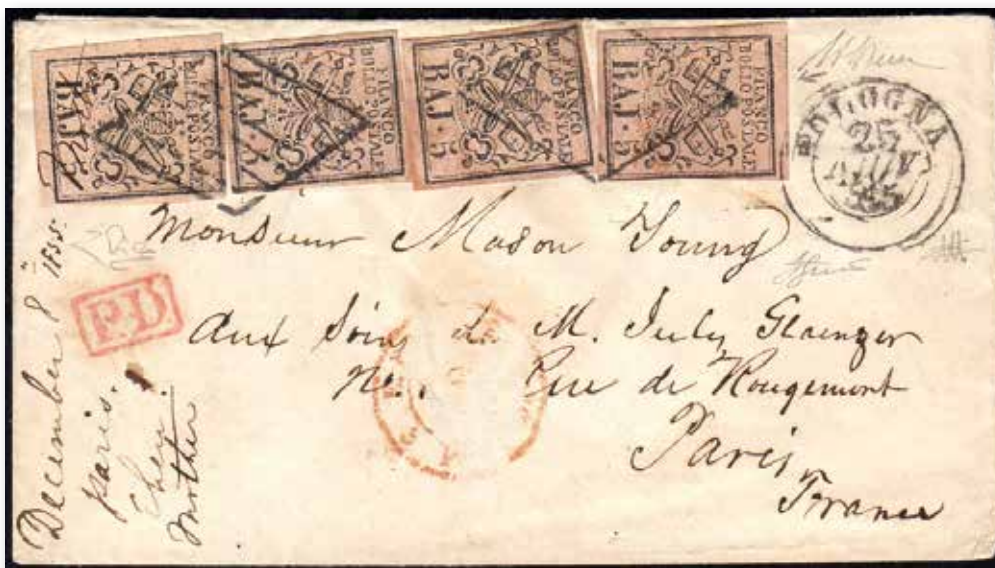 FRANCO
BOLLO POSTALE
BAJ. 5
FRANCO
BOLLO POSTALE
BAJ. 5
FRANCO
BOLLO POSTALE
BAJ. 5
FRANCO
BOLLO POSTALE
BAJ. 5
BOLOGNA
25
NOV
Monsieur Mason Young
Aux Soins de M. Jules Glaenzer
No. 1 Rue de Rougemont
Paris
France
P.D.
December 8" 1855.
Paris.
Mother